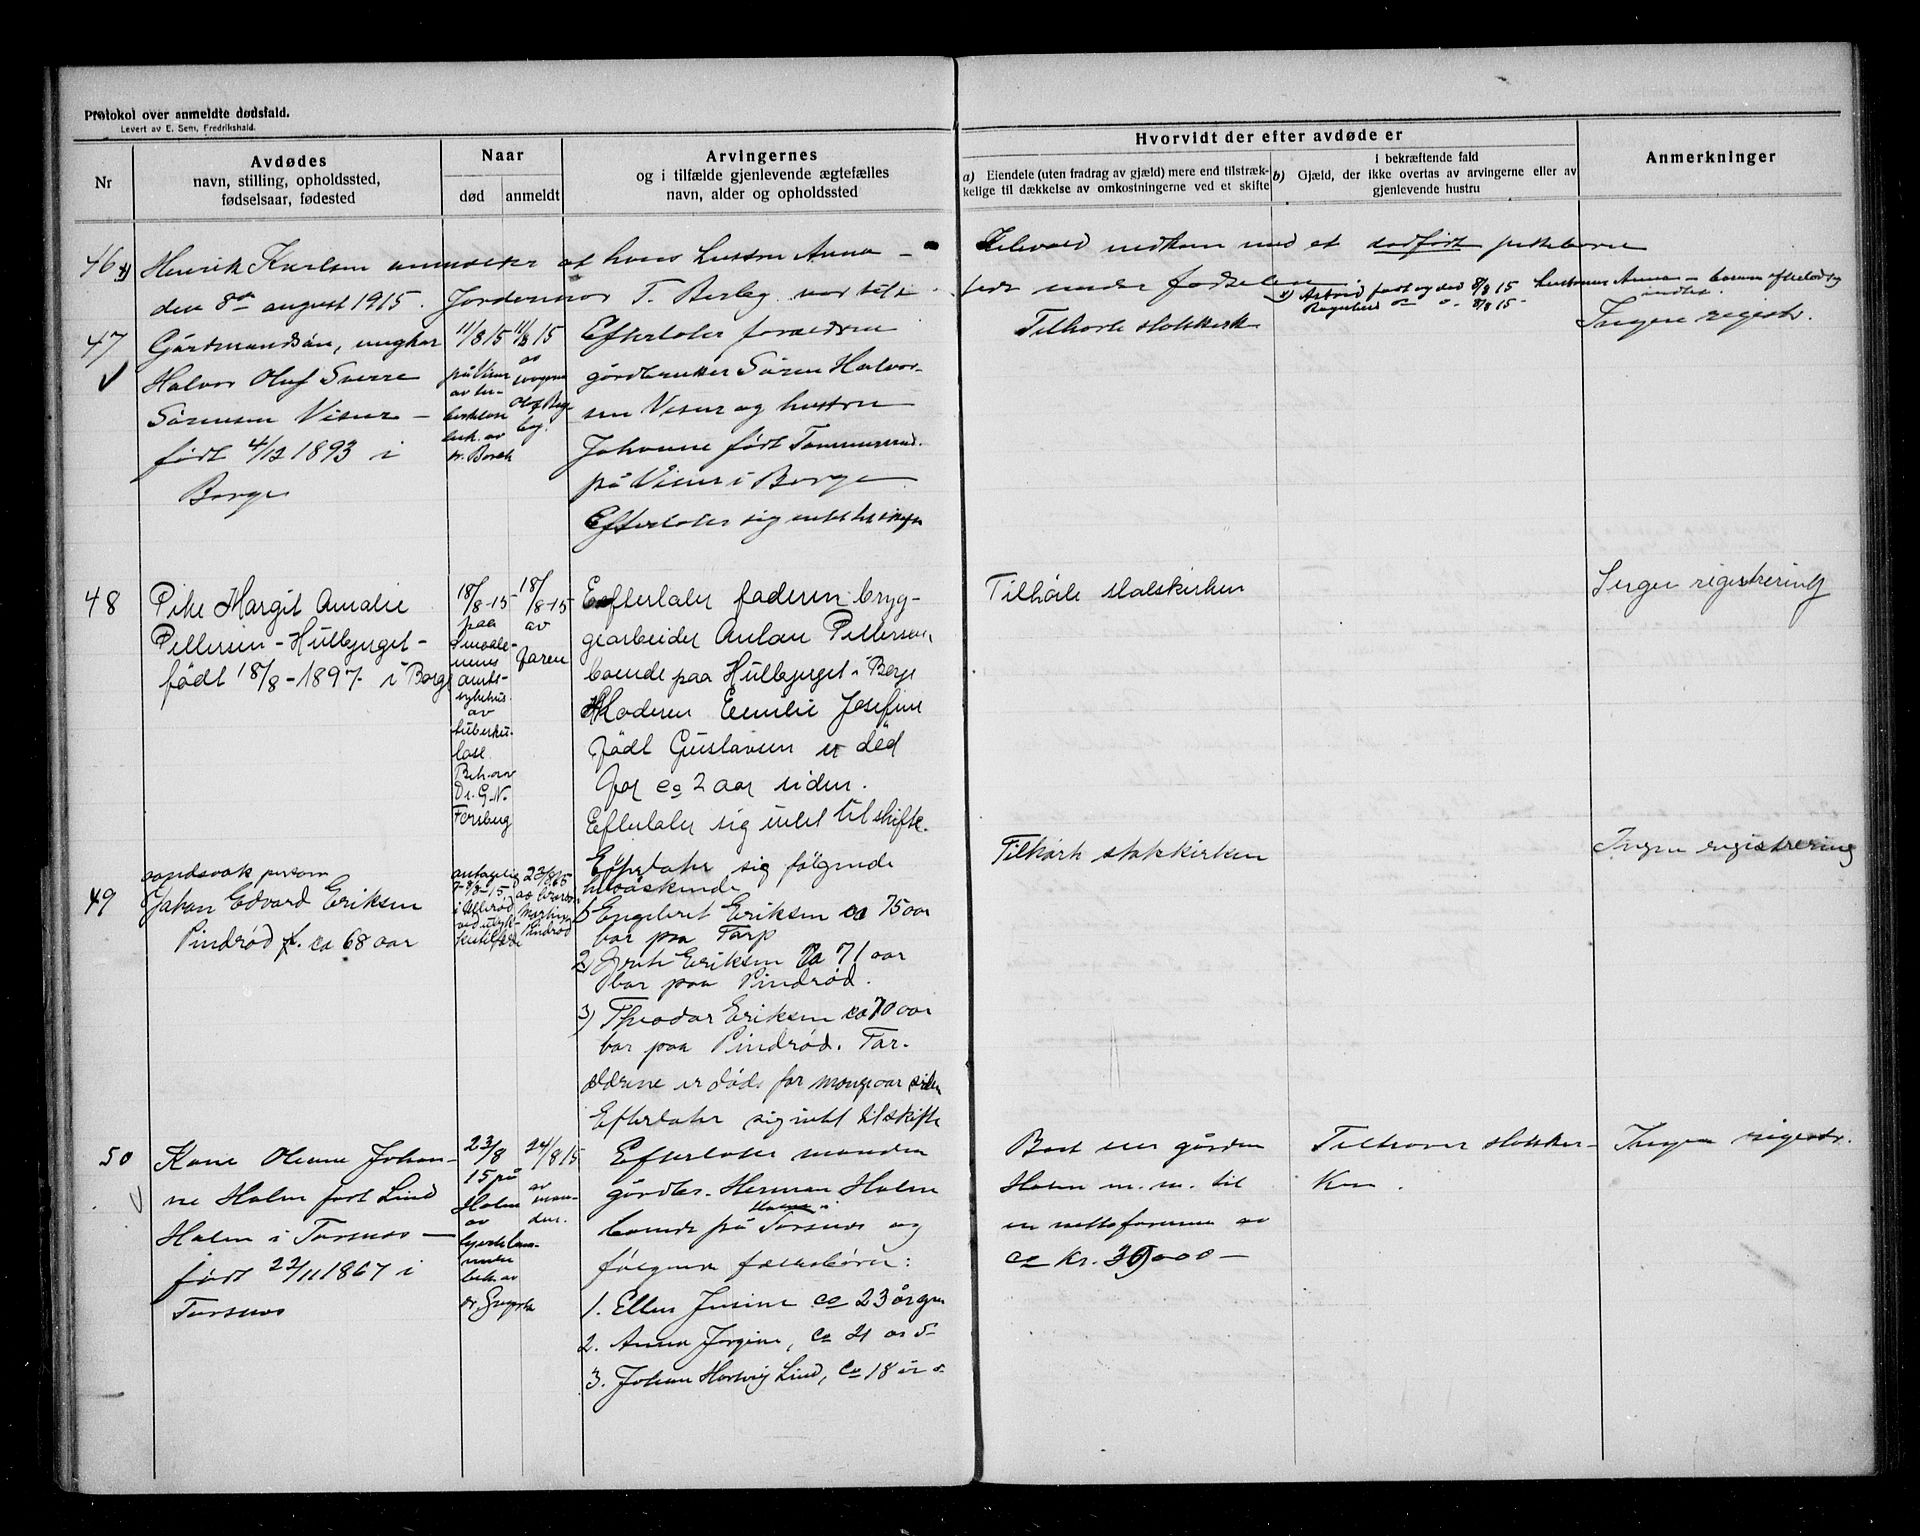 Protokol over anmeldte dødsfald.
Levert av E. Sem, Fredrikshald.
Nr
Avdødes
navn, stilling, opholdssted,
fødselsaar, fødested
Naar
død
anmeldt
Arvingernes
og i tilfælde gjenlevende ægtefælles
navn, alder og opholdssted
Hvorvidt der efter avdøde er
a) Eiendele (uten fradrag av gjæld) mere end tilstræk-
kelige til dækkelse av omkostningerne ved et skifte
I bekræftende fald
b) Gjæld, der ikke overtas av arvingerne eller av
gjenlevende hustru
Anmerkninger
46 x)
Henrik Karlsen anmelder at hans hustru Anna
den 8de august 1915. Jordemor T. Berby var tilst
nedkom med et dødfødt pikebarn
under fødselen
x) Astrid født og død 8/8 15
8/8 15
47
Gårdmandsøn, ungkar
Halvor Oluf Sverre
Sørensen Visur
født 4/12 1893 i
Borge
11/8 15
på Visur
av tu-
berkulose
beh. av
dr. Borch
11/8 15
av
Efterlater forældrene
gårdbruker Søren Halvor-
sen Visur og hustru
Johanne født Tommerrud
på Visur i Borge
Efterlater sig intet til skifte
Tilhørte statskirk
Ingen registr.
48
Pike Margit Amalie
Pettersen - Hullbjerget -
født 18/8 - 1897 i Borge
18/8-15
paa
Smaale-
nenes
amts-
sykehus
av
tuberku-
lose.
Beh. av
Dr. G. N.
Forsberg
18/8-15
av
faren
Efterlater faderen bryg-
gearbeider Anton Pettersen
boende paa Hullbjerget i Borge
Moderen Emilie Josefine
født Gustavsen er død
for ca 2 aar siden.
Efterlater sig intet til skifte.
Tilhørte statskirken
Ingen registrering
49
aandsvak person
Johan Edvard Eriksen
Pindrød f. ca 68 aar
antagelig
7-8/8-15
23/8 15
Martin
Pindrød
Efterlater sig følgende
helsøskende
1) Engebret Eriksen ca 75 aar
bor paa Torp
2) Grete Eriksen ca 71 aar
bor paa Pindrød.
3) Theodor Eriksen ca 70 aar
bor paa Pindrød. For-
ældrene er døde for mange aar siden
Efterlater sig intet til skifte
Tilhørte statskirken
Ingen registrering
50
Kone Oleane Johan-
ne Holm født Lind
Holm i Torsnes -
født 22/11 1867 i
Torsnes
23/8
15 på
Holm
av
hjertelam-
melse
beh. av
24/8 15
av
man-
den.
Efterlater manden
gårdbr. Herman Holm
boende på Holm i Torsnes og
følgende fællesbørn:
1. Ellen Josine ca 23 år gm
2. Anna Jorgine, ca 21 år
3. Johan Hartvig Lind, ca 18 år
Boet eier gården
Holm m. m. til
en nettoformue av
ca kr. 30,000 -
Tilhører statskir-
ken.
Ingen registr.